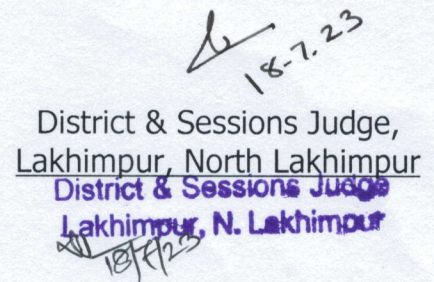 18-7.23
District & Sessions Judge,
Lakhimpur, North Lakhimpur
District & Sessions Judge
Lakhimpur, N. Lakhimpur
18/7/23